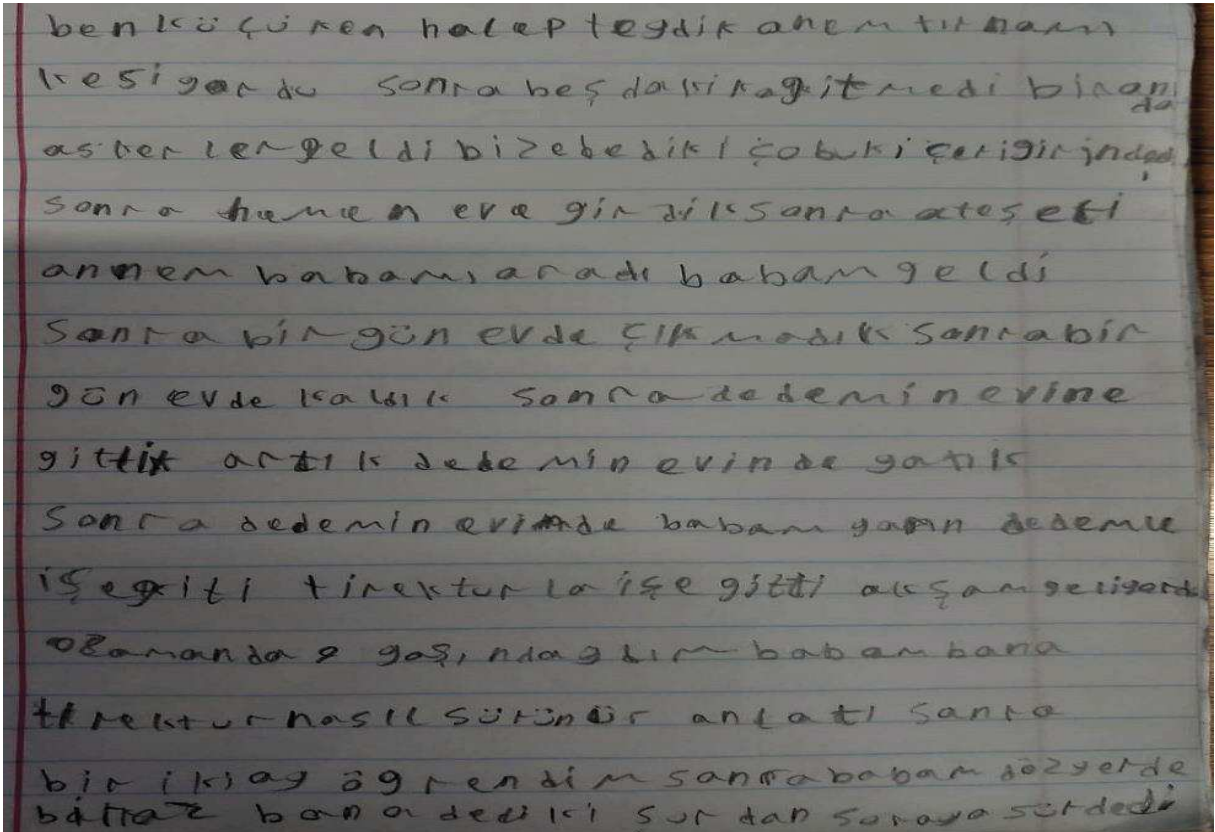 ben küçüken halep teydik anem tırnamı
kesiyordu sonra beş dakika gitmedi birani
da
askerler geldi bize bediki çobuk içeri girin dedi
sonra hemen eve girdik sonra ateş eti
annem babamı aradı babam geldi
sonra bir gün evde çıkmadık sonra bir
gün evde kaldık sonra dedemin evine
gittik artık dedemin evinde yatık
sonra dedemin evinde babam yarın dedemle
işe giti tirektur la işe gitti akşam geliyordu
o zamanda 9 yaşındaydım babam bana
tirektur nasıl sürünür anlatı sonra
bir iki ay öğrendim sonra babam düzyerde
biraz bana dediki surdan suraya sür dedi